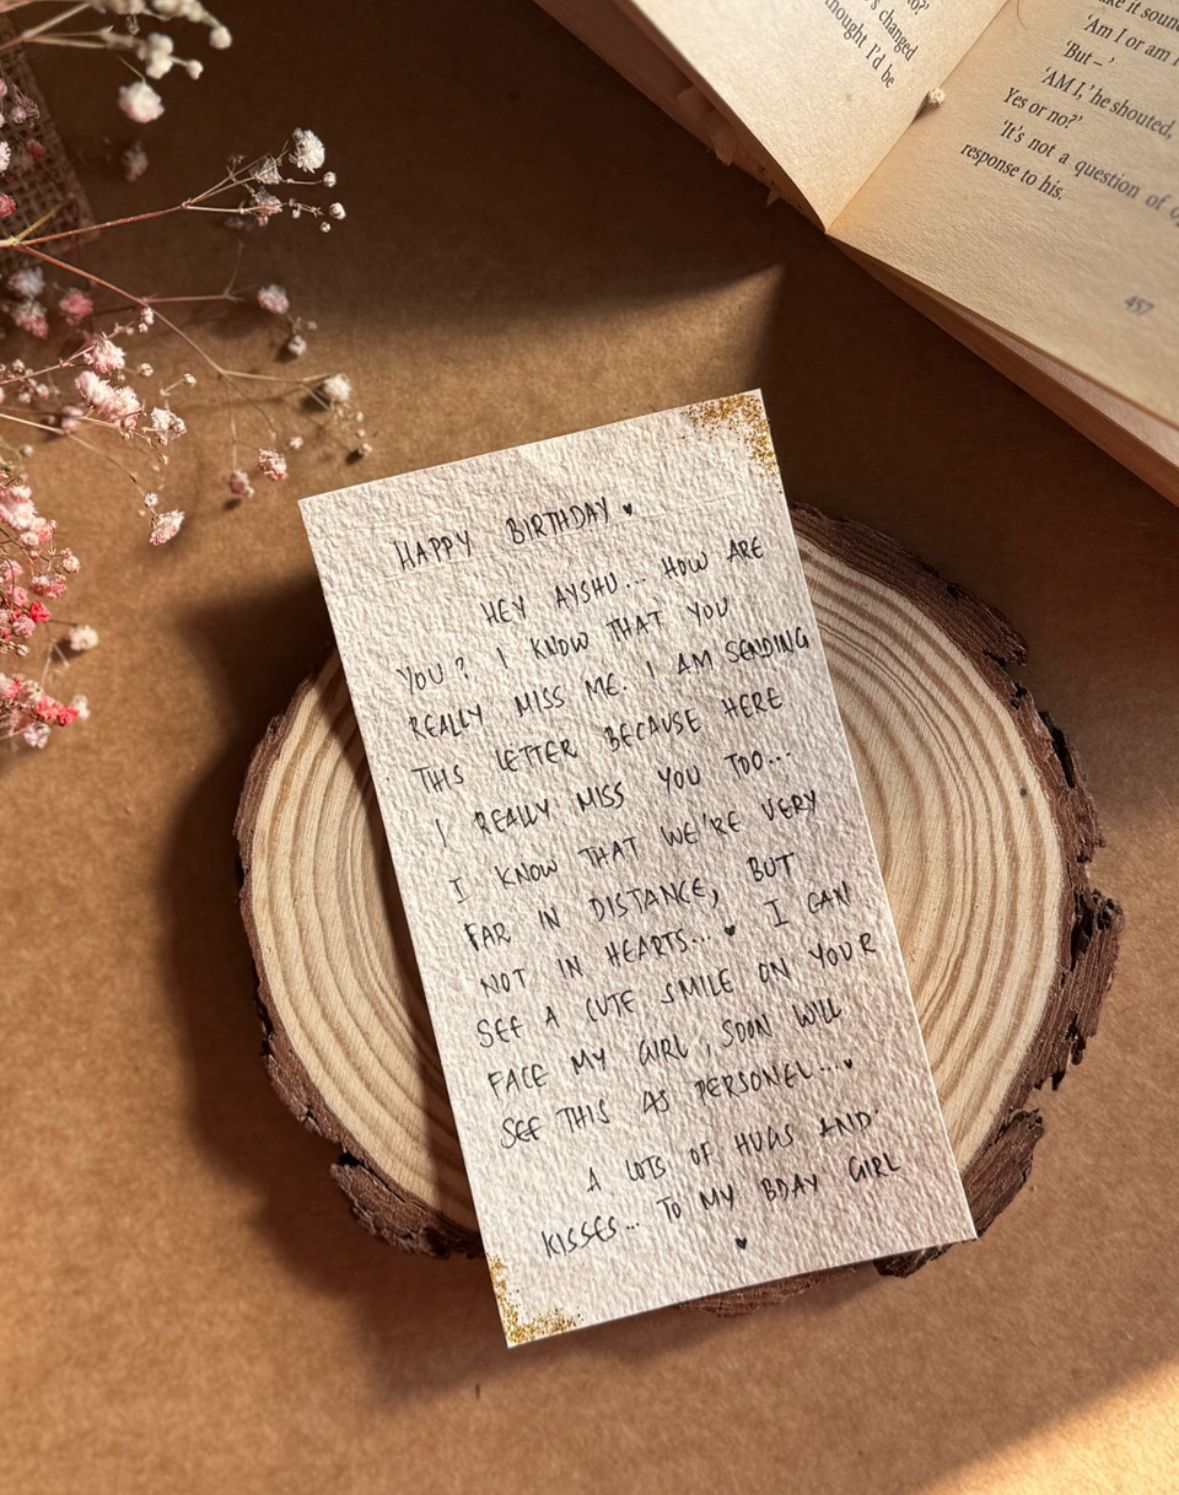 o?'
's changed
thought I'd be
ke it soun
'Am I or am I
'But – '
'AM I,' he shouted,
Yes or no?'
'It's not a question of o
response to his.
457
HAPPY BIRTHDAY ♥
HEY AYSHU... HOW ARE
YOU? I KNOW THAT YOU
REALLY MISS ME. I AM SENDING
THIS LETTER BECAUSE HERE
I REALLY MISS YOU TOO...
I KNOW THAT WE'RE VERY
FAR IN DISTANCE, BUT
NOT IN HEARTS... ♥ I CAN
SEE A CUTE SMILE ON YOUR
FACE MY GIRL, SOON WILL
SEE THIS AS PERSONEL... ♥
A LOTS OF HUGS AND
KISSES... TO MY BDAY GIRL
♥